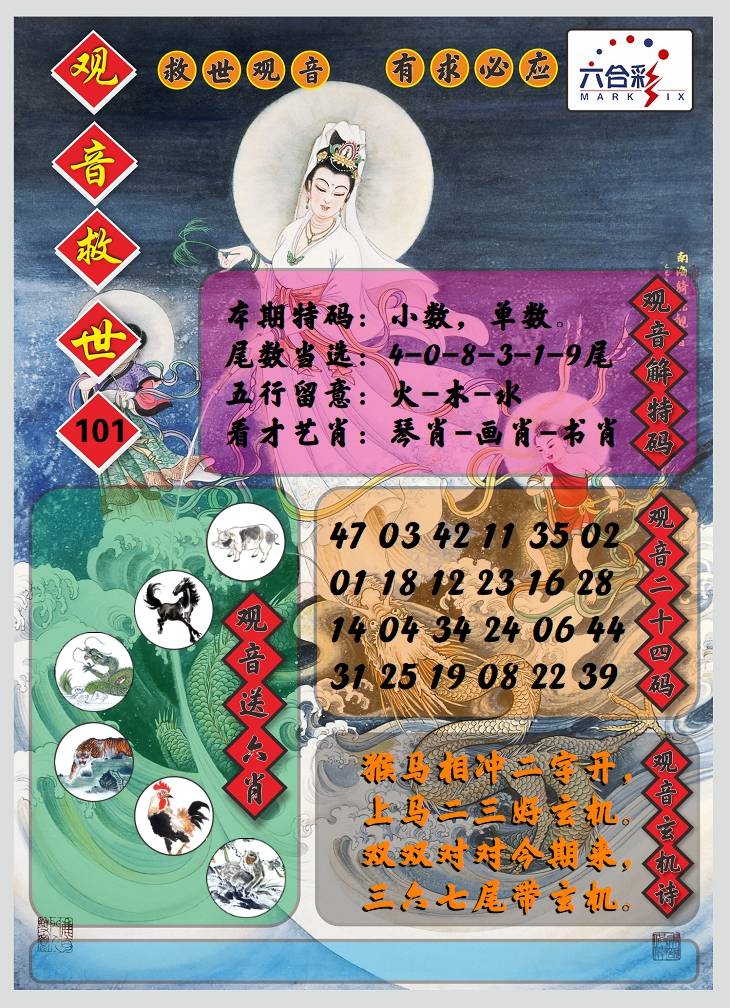 观音救世
101
救世观音 有求必应
六合彩
MARK SIX
南海
观音解特码
本期特码：小数，单数。
尾数当选：4-0-8-3-1-9尾
五行留意：火-木-水
看才艺肖：琴肖-画肖-书肖
观音二十四码
47 03 42 11 35 02
01 18 12 23 16 28
14 04 34 24 06 44
31 25 19 08 22 39
观音送六肖
观音玄机诗
猴马相冲二字开，
上马二三好玄机。
双双对对今期来，
三六七尾带玄机。